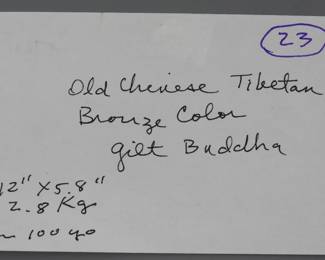 23
Old Chinese Tibetan
Bronze Color
gilt Buddha
12" x 5.8"
2.8 Kg
100 yo